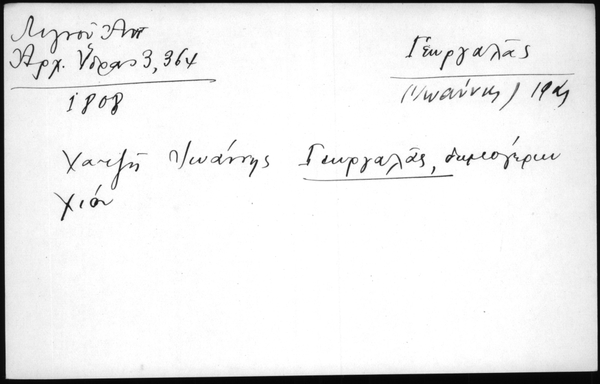 Λιγνοῦ Ἀντ
Ἀρχ. Ὕδρας 3, 364
1808
Γεωργαλᾶς
(Ἰωάννης) 19ος
Χατζῆ Ἰωάννης Γεωργαλᾶς, δημογέρων
Χίου